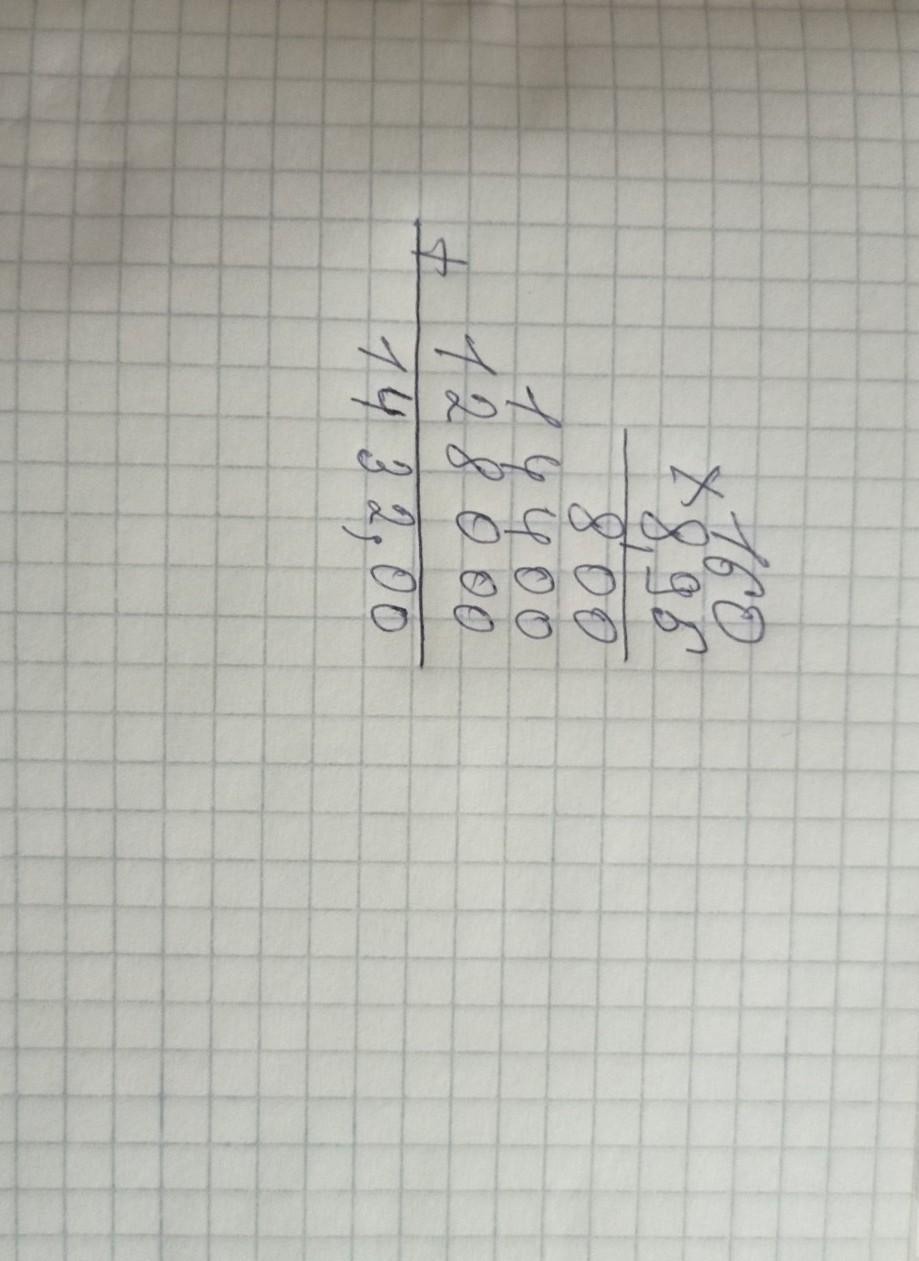 160
× 8,95
800
14400
+ 128000
1432,00